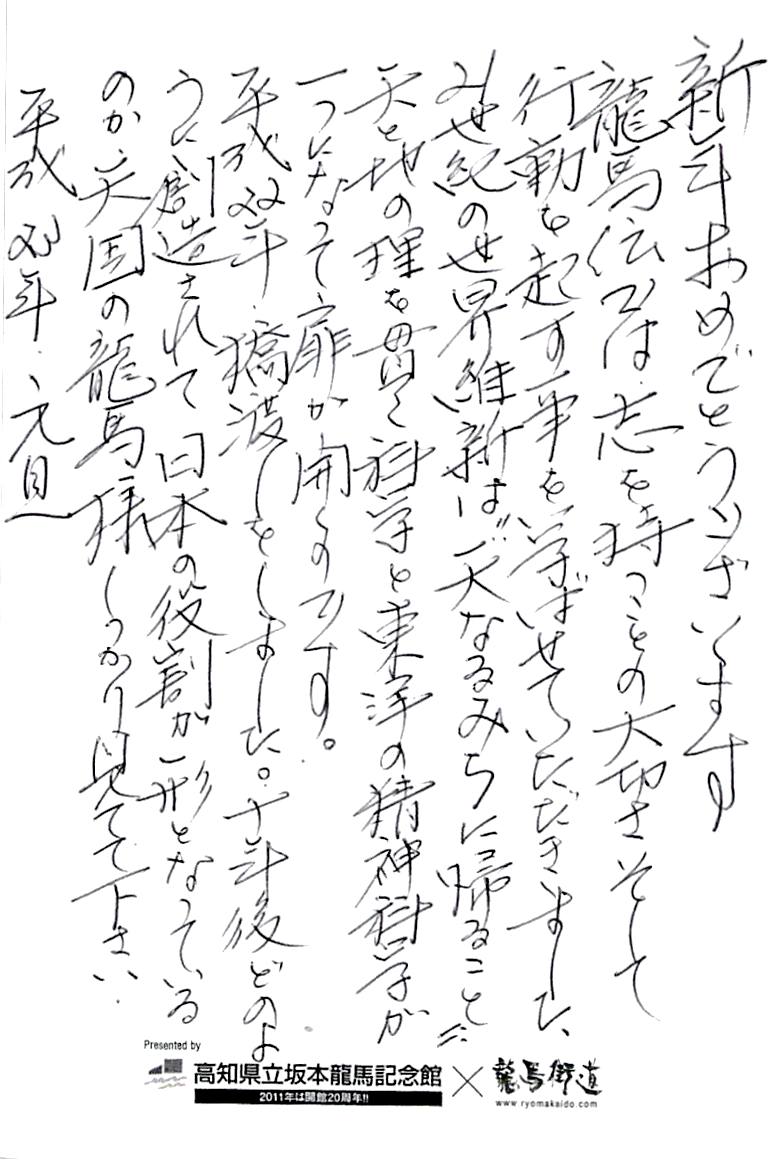 新年おめでとうございます
龍馬伝では志を持つことの大切さそして
行動を起す事を学ばせていただきました
21世紀の世界維新は〝天なるみちに帰ること〟
天と地の理を貫く科学と東洋の精神科学が
一つになって扉が開くのです。
平成22年 橋渡しをしました。十年後どのよ
うに創造されて日本の役割が形となっている
のか天国の龍馬様しっかり見てて下さい
平成23年 元旦
Presented by
高知県立坂本龍馬記念館 × 龍馬街道
2011年は開館20周年!!
www.ryomakaido.com